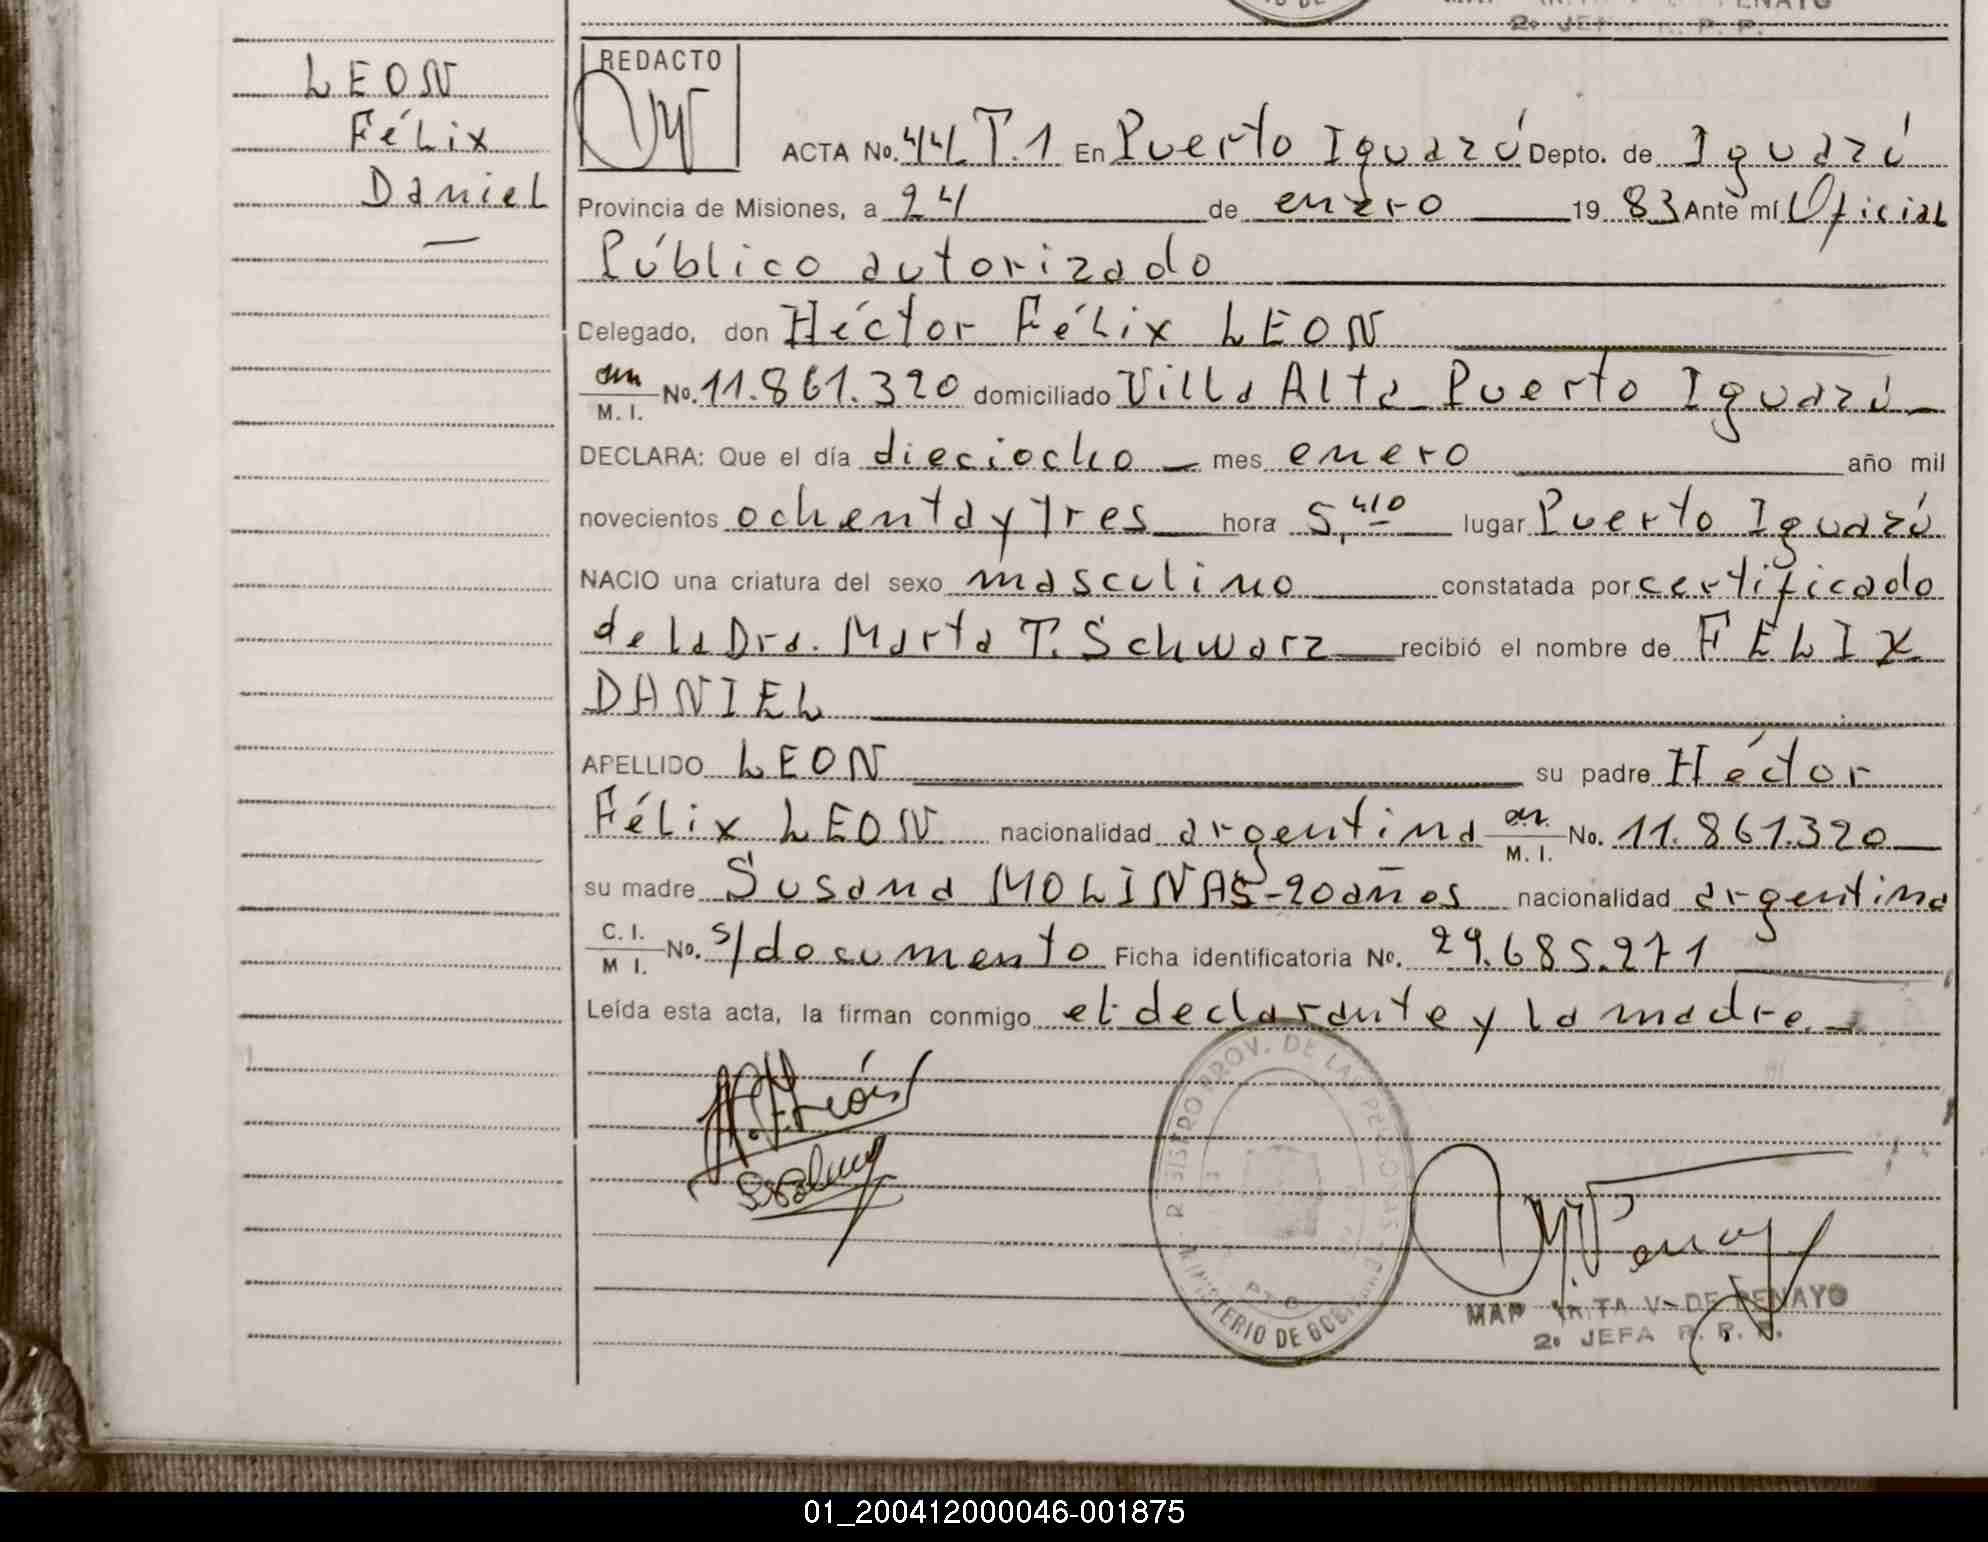 2º JEFA R. P. P.
REDACTO
LEON
Félix
Daniel
ACTA No. 44 T.1 En Puerto Iguazú Depto. de Iguazú
Provincia de Misiones, a 24 de enero 1983 Ante mí Oficial
Público autorizado
Delegado, don Héctor Félix LEON
M. I. No. 11.861.320 domiciliado Villa Alta Puerto Iguazú
DECLARA: Que el día dieciocho mes enero año mil
novecientos ochenta y tres hora 5,40 lugar Puerto Iguazú
NACIO una criatura del sexo masculino constatada por certificado
de la Dra. Marta T. Schwarz recibió el nombre de FELIX
DANIEL
APELLIDO LEON su padre Héctor
Félix LEON nacionalidad argentina M. I. No. 11.861.320
su madre Susana MOLINAS-20 años nacionalidad argentina
C. I. M I. No. s/documento Ficha identificatoria No. 29.685.271
Leída esta acta, la firman conmigo el declarante y la madre.
REGISTRO PROV. DE LAS PERSONAS
MINISTERIO DE GOBIERNO
V. DE PENAYO
2º JEFA R. P. P.
01_200412000046-001875